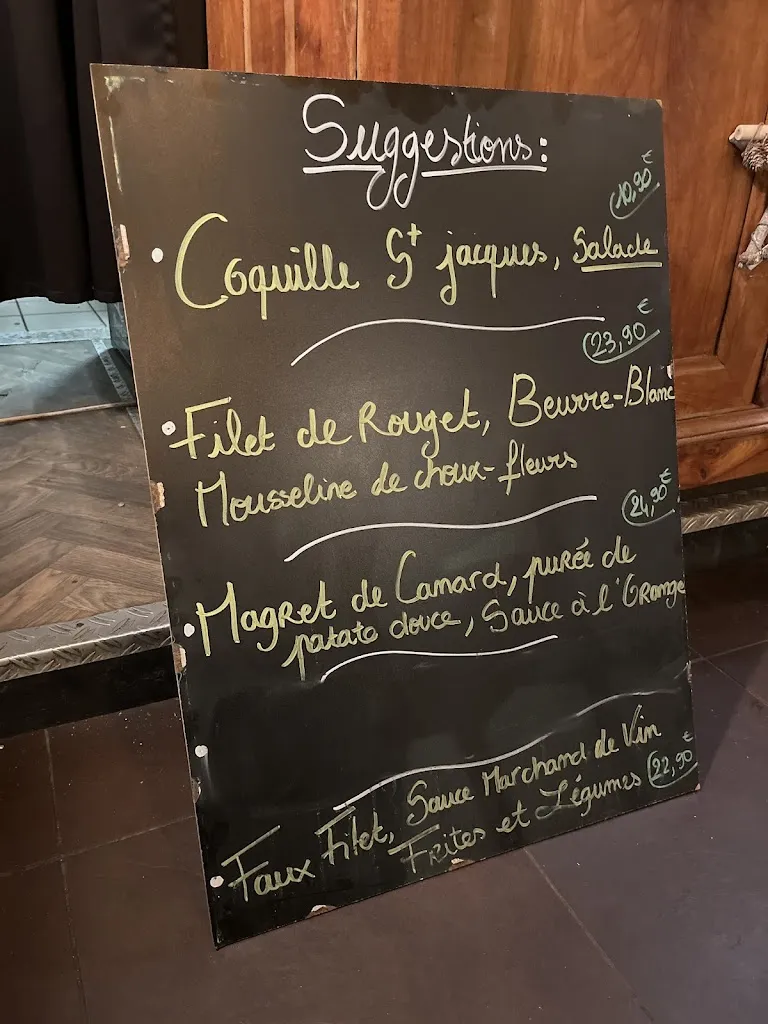 Suggestions:
10,90€
Coquille St jacques, Salade
23,90€
Filet de Rouget, Beurre-Blanc
Mousseline de choux-fleurs
24,90€
Magret de Canard, purée de
patate douce, Sauce à l'Orange
Faux Filet, Sauce Marchand de Vin
Frites et Légumes 22,90€